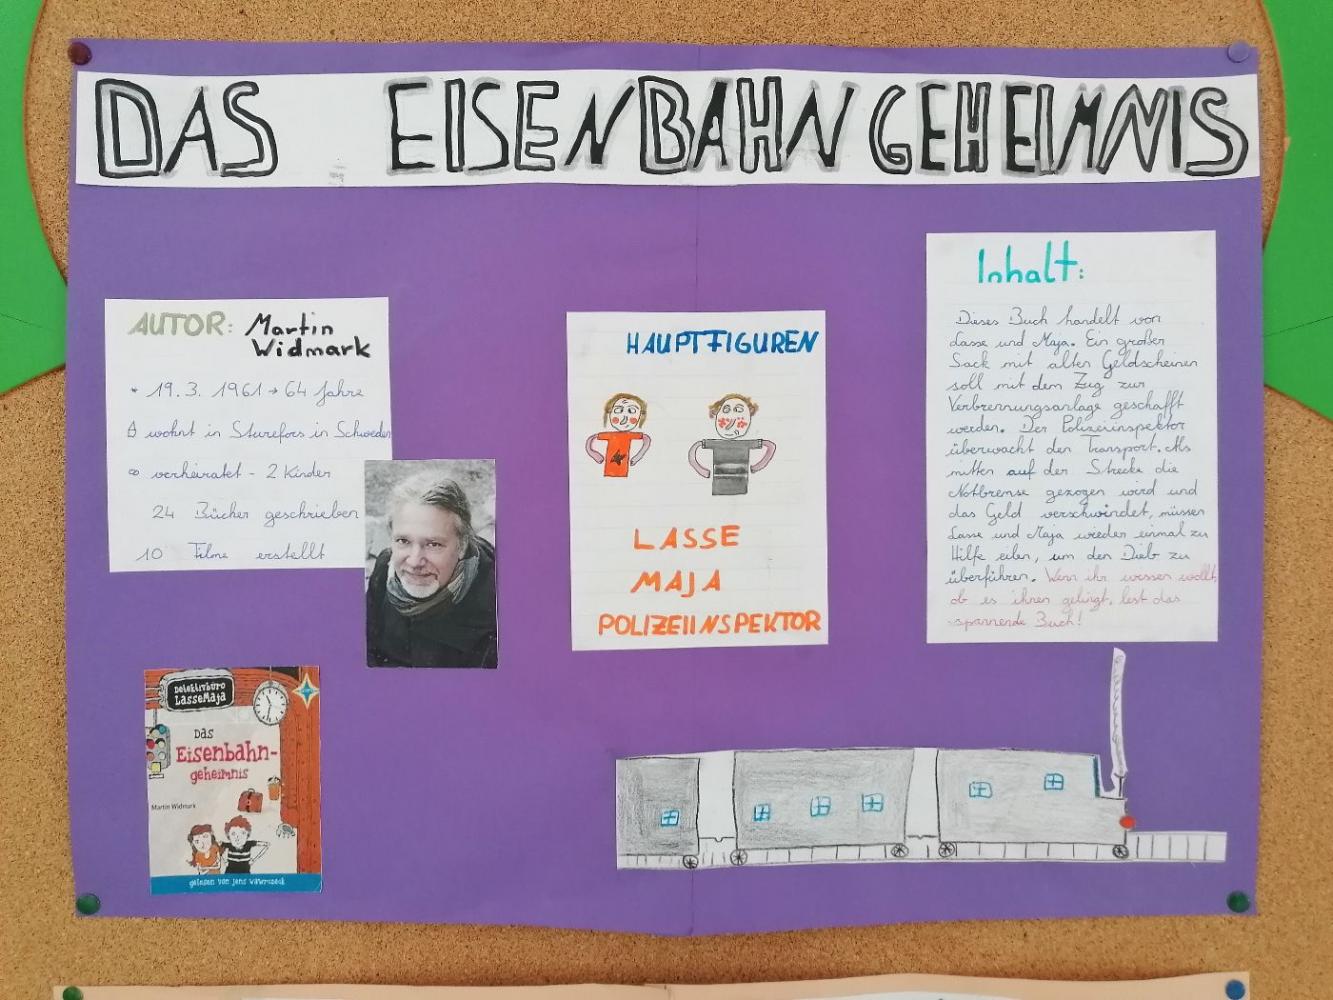 DAS EISENBAHNGEHEIMNIS
AUTOR: Martin
Widmark
* 19.3. 1961 → 64 Jahre
wohnt in Sturefors in Schweden
∞ verheiratet - 2 Kinder
24 Bücher geschrieben
10 Filme erstellt
Detektivbüro
LasseMaja
Das
Eisenbahn-
geheimnis
Martin Widmark
gelesen von Jens Wawrczeck
HAUPTFIGUREN
LASSE
MAJA
POLIZEIINSPEKTOR
Inhalt:
Dieses Buch handelt von
Lasse und Maja. Ein großer
Sack mit alten Geldscheinen
soll mit dem Zug zur
Verbrennungsanlage geschafft
werden. Der Polizeiinspektor
überwacht den Transport. Als
mitten auf der Strecke die
Notbremse gezogen wird und
das Geld verschwindet, müssen
Lasse und Maja wieder einmal zu
Hilfe eilen, um den Dieb zu
überführen. Wenn ihr wissen wollt,
ob es ihnen gelingt, lest das
spannende Buch!